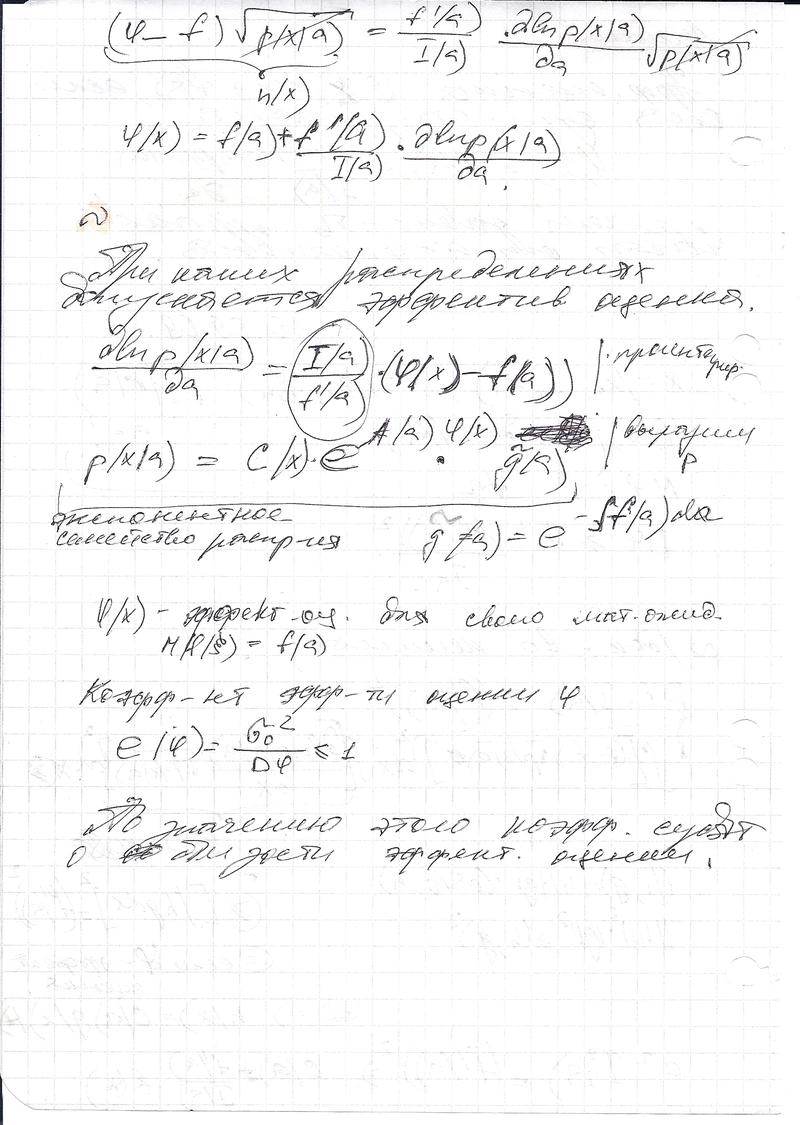 (φ – f) √p(x|a) = f'(a) / I(a) · ∂ln p(x|a) / ∂a √p(x|a)
h(x)
φ(x) = f(a) + f'(a) / I(a) · ∂ln p(x|a) / ∂a
~
При каких распределениях
допускается эффектив оценка.
∂ln p(x|a) / ∂a = I(a) / f'(a) · (φ(x) – f(a)) | · проинтегрир.
p(x|a) = C(x) · e^A(a) φ(x) · g̃(a) | выпишем p
экспонентное
семейство распр-ия g̃(a) = e^-∫f(a)da
φ(x) – эффект. оц. для своего мат. ожид.
M φ(ξ) = f(a)
Коэфф-нт эфф-ти оценки φ
e(φ) = σ₀² / Dφ ≤ 1
По значению этого коэфф. судят
о близости эффект. оценки.